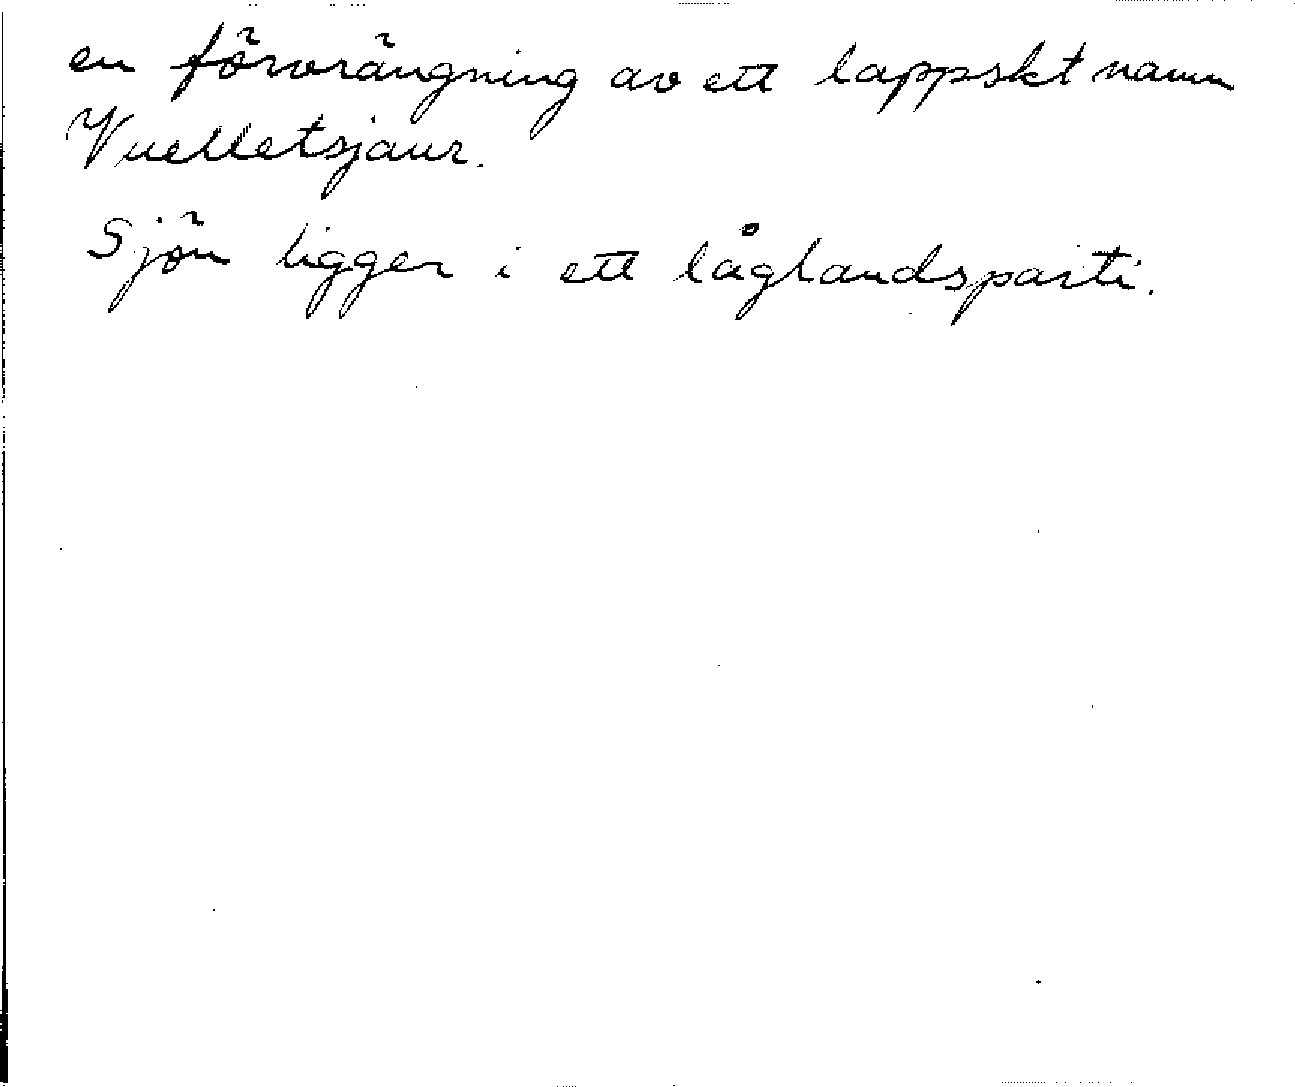 en förvrängning av ett lappskt namn
Vuelletsjaur.
Sjön ligger i ett låglandsparti.